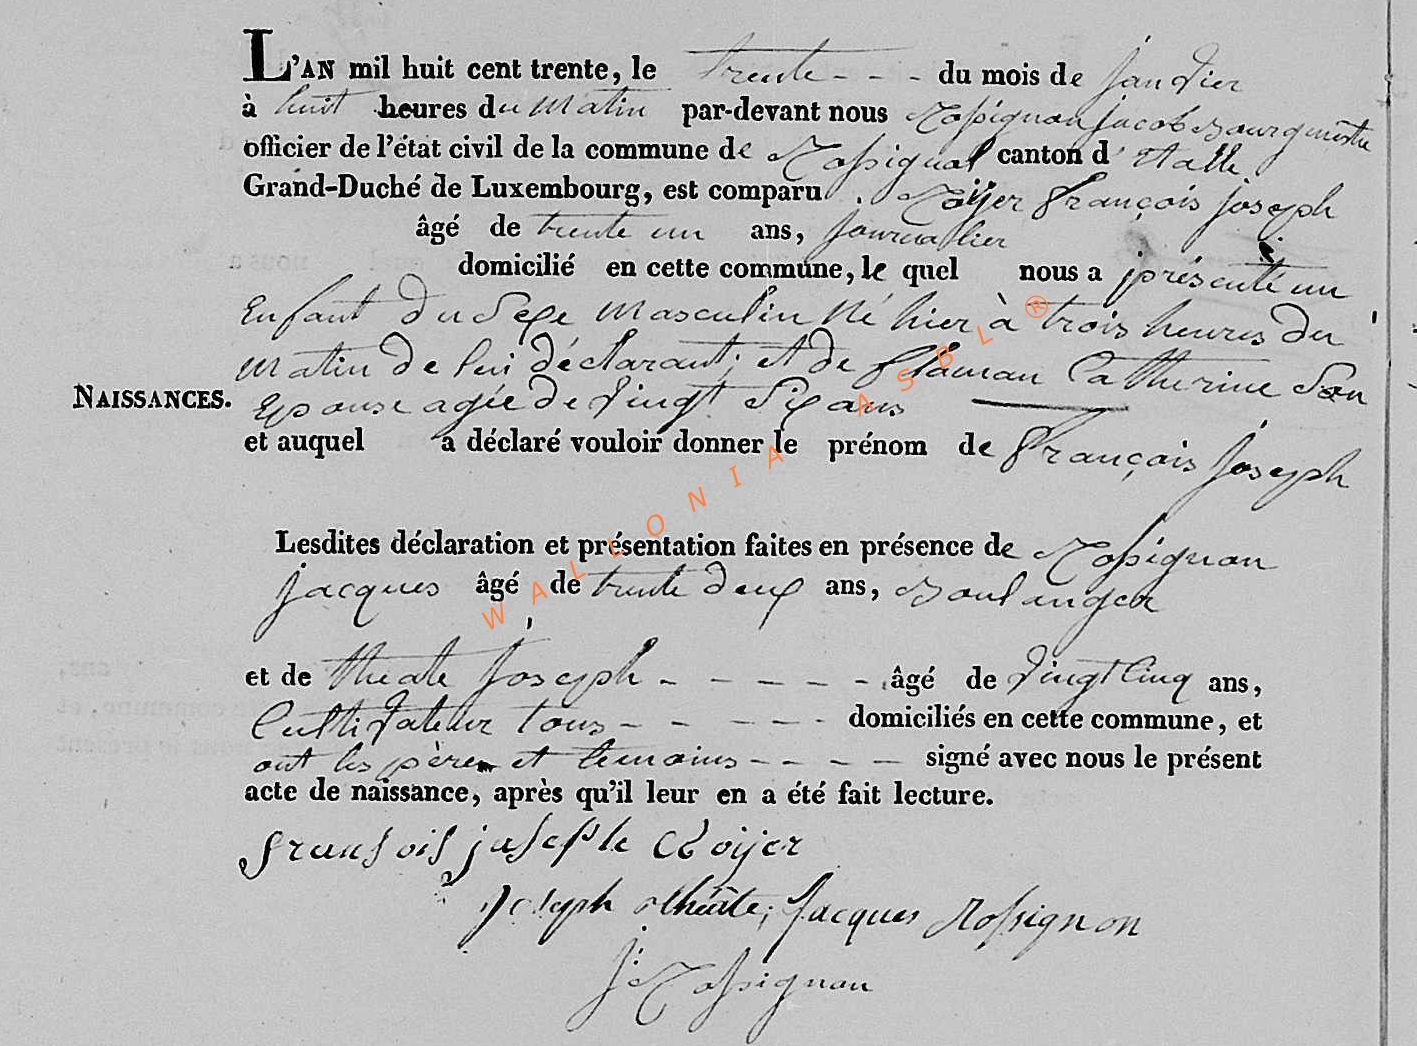 L'AN mil huit cent trente, le trente - - - du mois de janvier
à huit heures du Matin par-devant nous Rossignon Jacob Bourgmestre
officier de l'état civil de la commune de Rossignol canton d'Etalle
Grand-Duché de Luxembourg, est comparu Roijer François joseph
âgé de trente un ans, journallier
domicilié en cette commune, le quel nous a présenté un
Enfant du Sexe Masculin Né hier à trois heures du
Matin de lui déclarant, et de Flaman Catherine Son
NAISSANCES.
Epouse agée de Vingt Six ans
et auquel a déclaré vouloir donner le prénom de François Joseph
Lesdites déclaration et présentation faites en présence de Rossignon
Jacques âgé de trente deux ans, Boulanger
et de théate Joseph - - - - - - âgé de Vingt Cinq ans,
Cultivateur tous - - - - - domiciliés en cette commune, et
ont les pères et temoins - - - - signé avec nous le présent
acte de naissance, après qu'il leur en a été fait lecture.
fransois joseph Roijer
Joseph théate, Jacques Rossignon
J: Rossignon
WALLONIA ASBL ®